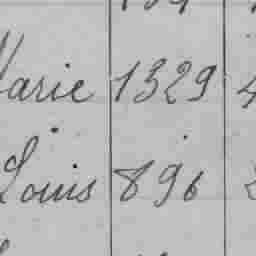 Marie 1329 4
Louis 896